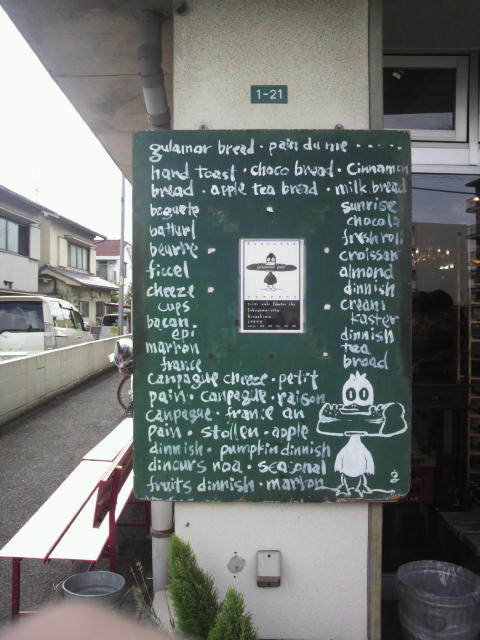 1-21
gulamor bread · pain du mie · · · · ·
hand toast · choco bread · Cinnamon
bread · apple tea bread · milk bread
baguete
batturl
beurre
ficcel
cheeze
cups
bacon
epi
marron
france
sunrise
chocola
fresh roll
croissan
almond
dinnish
cream
kaster
dinnish
tea
bread
campague cheeze · petit
pain · campague · raison
campague · france an
pain · stollen · apple
dinnish · pumpkin dinnish
dincurs noa · seasonal
fruits dinnish · marron